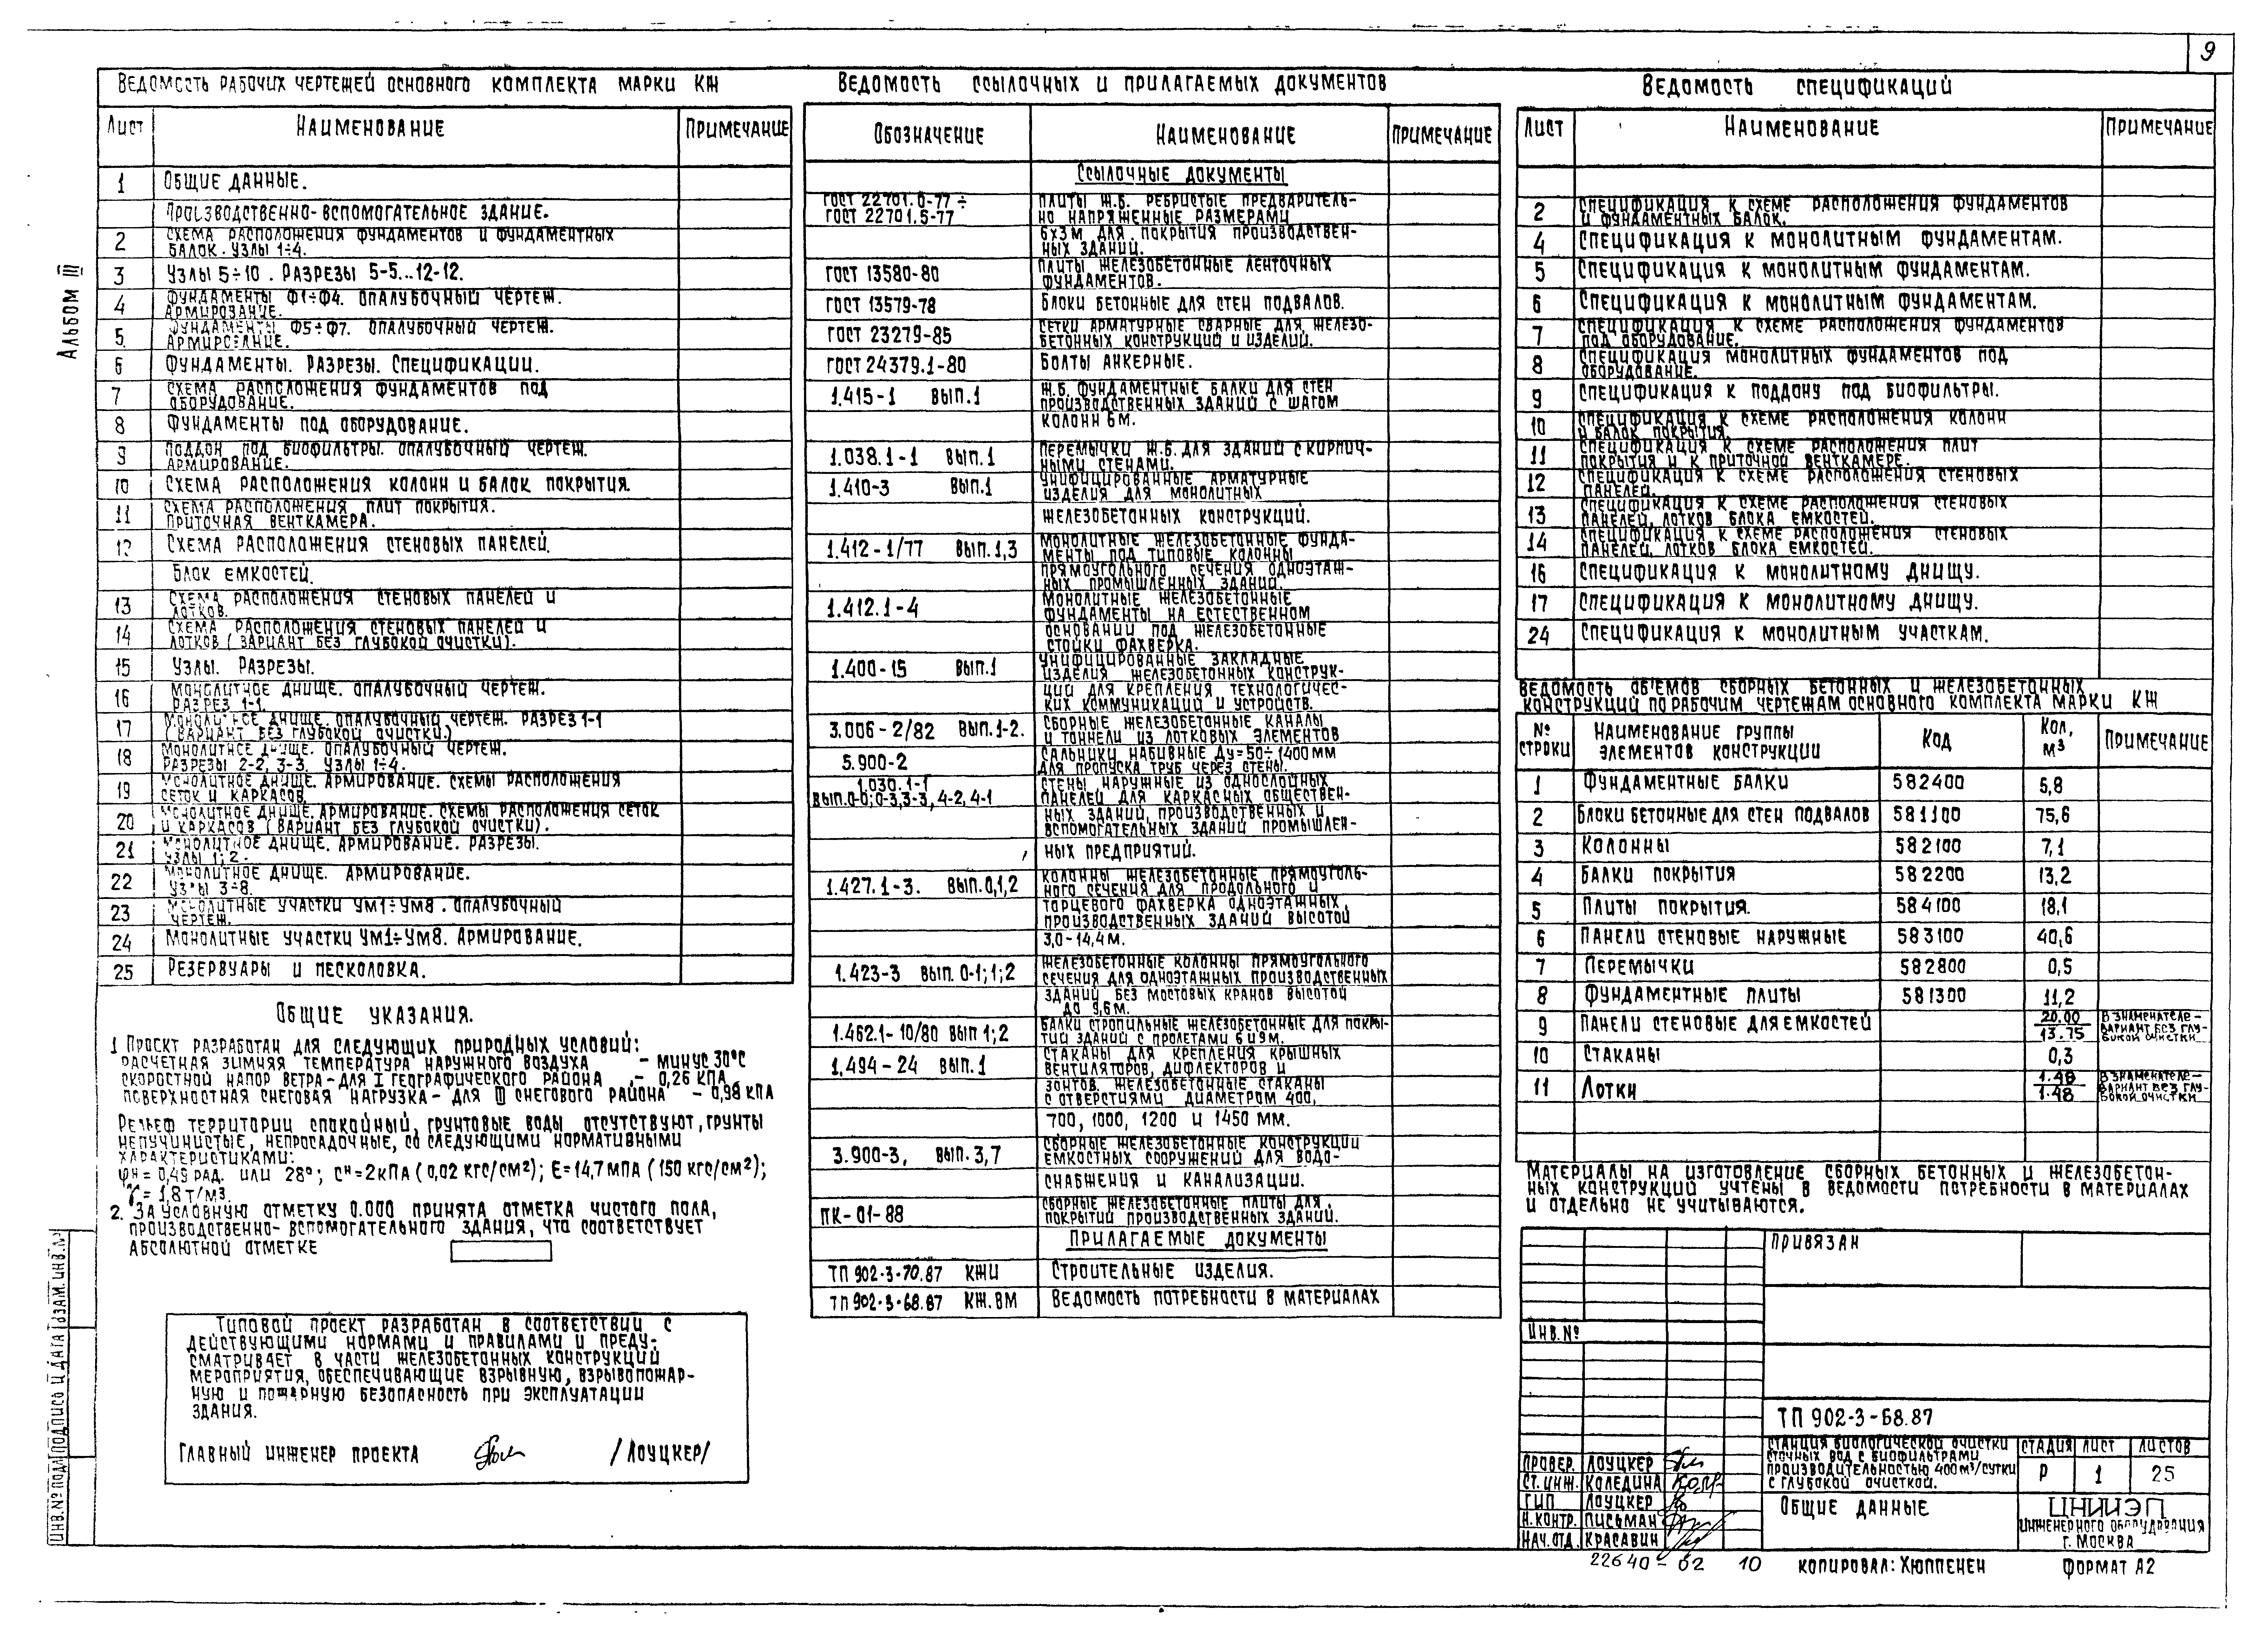 9
Альбом III
Ведомость рабочих чертежей основного комплекта марки КЖ
Лист Наименование Примечание
1 Общие данные.
Производственно-вспомогательное здание.
2 Схема расположения фундаментов и фундаментных
балок. Узлы 1÷4.
3 Узлы 5÷10. Разрезы 5-5...12-12.
4 Фундаменты Ф1÷Ф4. Опалубочный чертеж.
Армирование.
5 Фундаменты Ф5÷Ф7. Опалубочный чертеж.
Армирование.
6 Фундаменты. Разрезы. Спецификации.
7 Схема расположения фундаментов под
оборудование.
8 Фундаменты под оборудование.
9 Поддон под биофильтры. Опалубочный чертеж.
Армирование.
10 Схема расположения колонн и балок покрытия.
11 Схема расположения плит покрытия.
Приточная венткамера.
12 Схема расположения стеновых панелей.
Блок емкостей.
13 Схема расположения стеновых панелей и
лотков.
14 Схема расположения стеновых панелей и
лотков (вариант без глубокой очистки).
15 Узлы. Разрезы.
16 Монолитное днище. Опалубочный чертеж.
Разрез 1-1.
17 Монолитное днище. Опалубочный чертеж. Разрез 1-1
(вариант без глубокой очистки.)
18 Монолитное днище. Опалубочный чертеж.
Разрезы 2-2, 3-3. Узлы 1÷4.
19 Монолитное днище. Армирование. Схемы расположения
сеток и каркасов.
20 Монолитное днище. Армирование. Схемы расположения сеток
и каркасов (вариант без глубокой очистки).
21 Монолитное днище. Армирование. Разрезы.
Узлы 1; 2.
22 Монолитное днище. Армирование.
Узлы 3÷8.
23 Монолитные участки Ум1÷Ум8. Опалубочный
чертеж.
24 Монолитные участки Ум1÷Ум8. Армирование.
25 Резервуары и песколовка.
Общие указания.
1 Проект разработан для следующих природных условий:
расчетная зимняя температура наружного воздуха – минус 30°С
скоростной напор ветра – для I географического района – 0,26 кПа
поверхностная снеговая нагрузка – для III снегового района – 0,98 кПа
Рельеф территории спокойный, грунтовые воды отсутствуют, грунты
непучинистые, непросадочные, со следующими нормативными
характеристиками:
φн = 0,49 рад. или 28°; Сн = 2кПа (0,02 кгс/см²); Е = 14,7 МПа (150 кгс/см²);
γ = 1,8 т/м³.
2. За условную отметку 0.000 принята отметка чистого пола,
производственно-вспомогательного здания, что соответствует
абсолютной отметке
Типовой проект разработан в соответствии с
действующими нормами и правилами и преду-
сматривает в части железобетонных конструкций
мероприятия, обеспечивающие взрывную, взрывопожар-
ную и пожарную безопасность при эксплуатации
здания.
Главный инженер проекта /Лоуцкер/
Инв.№подл Подпись и дата Взам.инв.№
Ведомость ссылочных и прилагаемых документов
Обозначение Наименование Примечание
Ссылочные документы
ГОСТ 22701.0-77 ÷ Плиты ж.б. ребристые предваритель-
ГОСТ 22701.5-77 но напряженные размерами
6х3м для покрытия производствен-
ных зданий.
ГОСТ 13580-80 Плиты железобетонные ленточных
фундаментов.
ГОСТ 13579-78 Блоки бетонные для стен подвалов.
ГОСТ 23279-85 Сетки арматурные сварные для железо-
бетонных конструкций и изделий.
ГОСТ 24379.1-80 Болты анкерные.
1.415-1 вып.1 Ж.б. фундаментные балки для стен
производственных зданий с шагом
колонн 6м.
1.038.1-1 вып.1 Перемычки ж.б. для зданий с кирпич-
ными стенами.
1.410-3 вып.1 Унифицированные арматурные
изделия для монолитных
железобетонных конструкций.
1.412-1/77 вып.1,3 Монолитные железобетонные фунда-
менты под типовые колонны
прямоугольного сечения одноэтаж-
ных промышленных зданий.
1.412.1-4 Монолитные железобетонные
фундаменты на естественном
основании под железобетонные
стойки фахверка.
1.400-15 вып.1 Унифицированные закладные
изделия железобетонных конструк-
ций для крепления технологичес-
ких коммуникаций и устройств.
3.006-2/82 вып.1-2. Сборные железобетонные каналы
и тоннели из лотковых элементов
5.900-2 Сальники набивные Ду=50÷1400 мм
для пропуска труб через стены.
1.030.1-1 Стены наружные из однослойных
вып.0-0; 0-3, 3-3, 4-2, 4-1 панелей для каркасных обществен-
ных зданий, производственных и
вспомогательных зданий промышлен-
ных предприятий.
1.427.1-3. вып.0,1,2 Колонны железобетонные прямоуголь-
ного сечения для продольного и
торцевого фахверка одноэтажных
производственных зданий высотой
3,0-14,4м.
1.423-3 вып. 0-1; 1; 2 Железобетонные колонны прямоугольного
сечения для одноэтажных производственных
зданий без мостовых кранов высотой
до 9,6м.
1.462.1-10/80 вып 1; 2 Балки стропильные железобетонные для покры-
тий зданий с пролетами 6 и 9м.
1.494-24 вып.1 Стаканы для крепления крышных
вентиляторов, дифлекторов и
зонтов. Железобетонные стаканы
с отверстиями диаметром 400,
700, 1000, 1200 и 1450 мм.
3.900-3, вып. 3,7 Сборные железобетонные конструкции
емкостных сооружений для водо-
снабжения и канализации.
ПК-01-88 Сборные железобетонные плиты для
покрытий производственных зданий.
Прилагаемые документы
ТП 902-3-70.87 КЖИ Строительные изделия.
ТП 902-3-68.87 КЖ.ВМ Ведомость потребности в материалах
Ведомость спецификаций
Лист Наименование Примечание
2 Спецификация к схеме расположения фундаментов
и фундаментных балок.
4 Спецификация к монолитным фундаментам.
5 Спецификация к монолитным фундаментам.
6 Спецификация к монолитным фундаментам.
7 Спецификация к схеме расположения фундаментов
под оборудование.
8 Спецификация монолитных фундаментов под
оборудование.
9 Спецификация к поддону под биофильтры.
10 Спецификация к схеме расположения колонн
и балок покрытия.
11 Спецификация к схеме расположения плит
покрытия и к приточной венткамере.
12 Спецификация к схеме расположения стеновых
панелей.
13 Спецификация к схеме расположения стеновых
панелей, лотков блока емкостей.
14 Спецификация к схеме расположения стеновых
панелей, лотков блока емкостей.
16 Спецификация к монолитному днищу.
17 Спецификация к монолитному днищу.
24 Спецификация к монолитным участкам.
Ведомость объемов сборных бетонных и железобетонных
конструкций по рабочим чертежам основного комплекта марки КЖ
№ строки Наименование группы элементов конструкции Код Кол, м³ Примечание
1 Фундаментные балки 582400 5,8
2 Блоки бетонные для стен подвалов 581100 75,6
3 Колонны 582100 7,1
4 Балки покрытия 582200 13,2
5 Плиты покрытия. 584100 18,1
6 Панели стеновые наружные 583100 40,6
7 Перемычки 582800 0,5
8 Фундаментные плиты 581300 11,2
9 Панели стеновые для емкостей 20.00/13.75 В знаменателе – вариант без глубокой очистки
10 Стаканы 0,3
11 Лотки 1.48/1.48 В знаменателе – вариант без глубокой очистки
Материалы на изготовление сборных бетонных и железобетон-
ных конструкций учтены в ведомости потребности в материалах
и отдельно не учитываются.
Привязан
Инв.№
ТП 902-3-68.87
Провер. Лоуцкер
Ст.инж. Коледина
ГИП Лоуцкер
Н.контр. Письман
Нач.отд. Красавин
Станция биологической очистки
сточных вод с биофильтрами
производительностью 400 м³/сутки
с глубокой очисткой.
Стадия Лист Листов
Р 1 25
Общие данные
ЦНИИЭП
инженерного оборудования
г. Москва
22640-02 10 Копировал: Хюппенен Формат А2